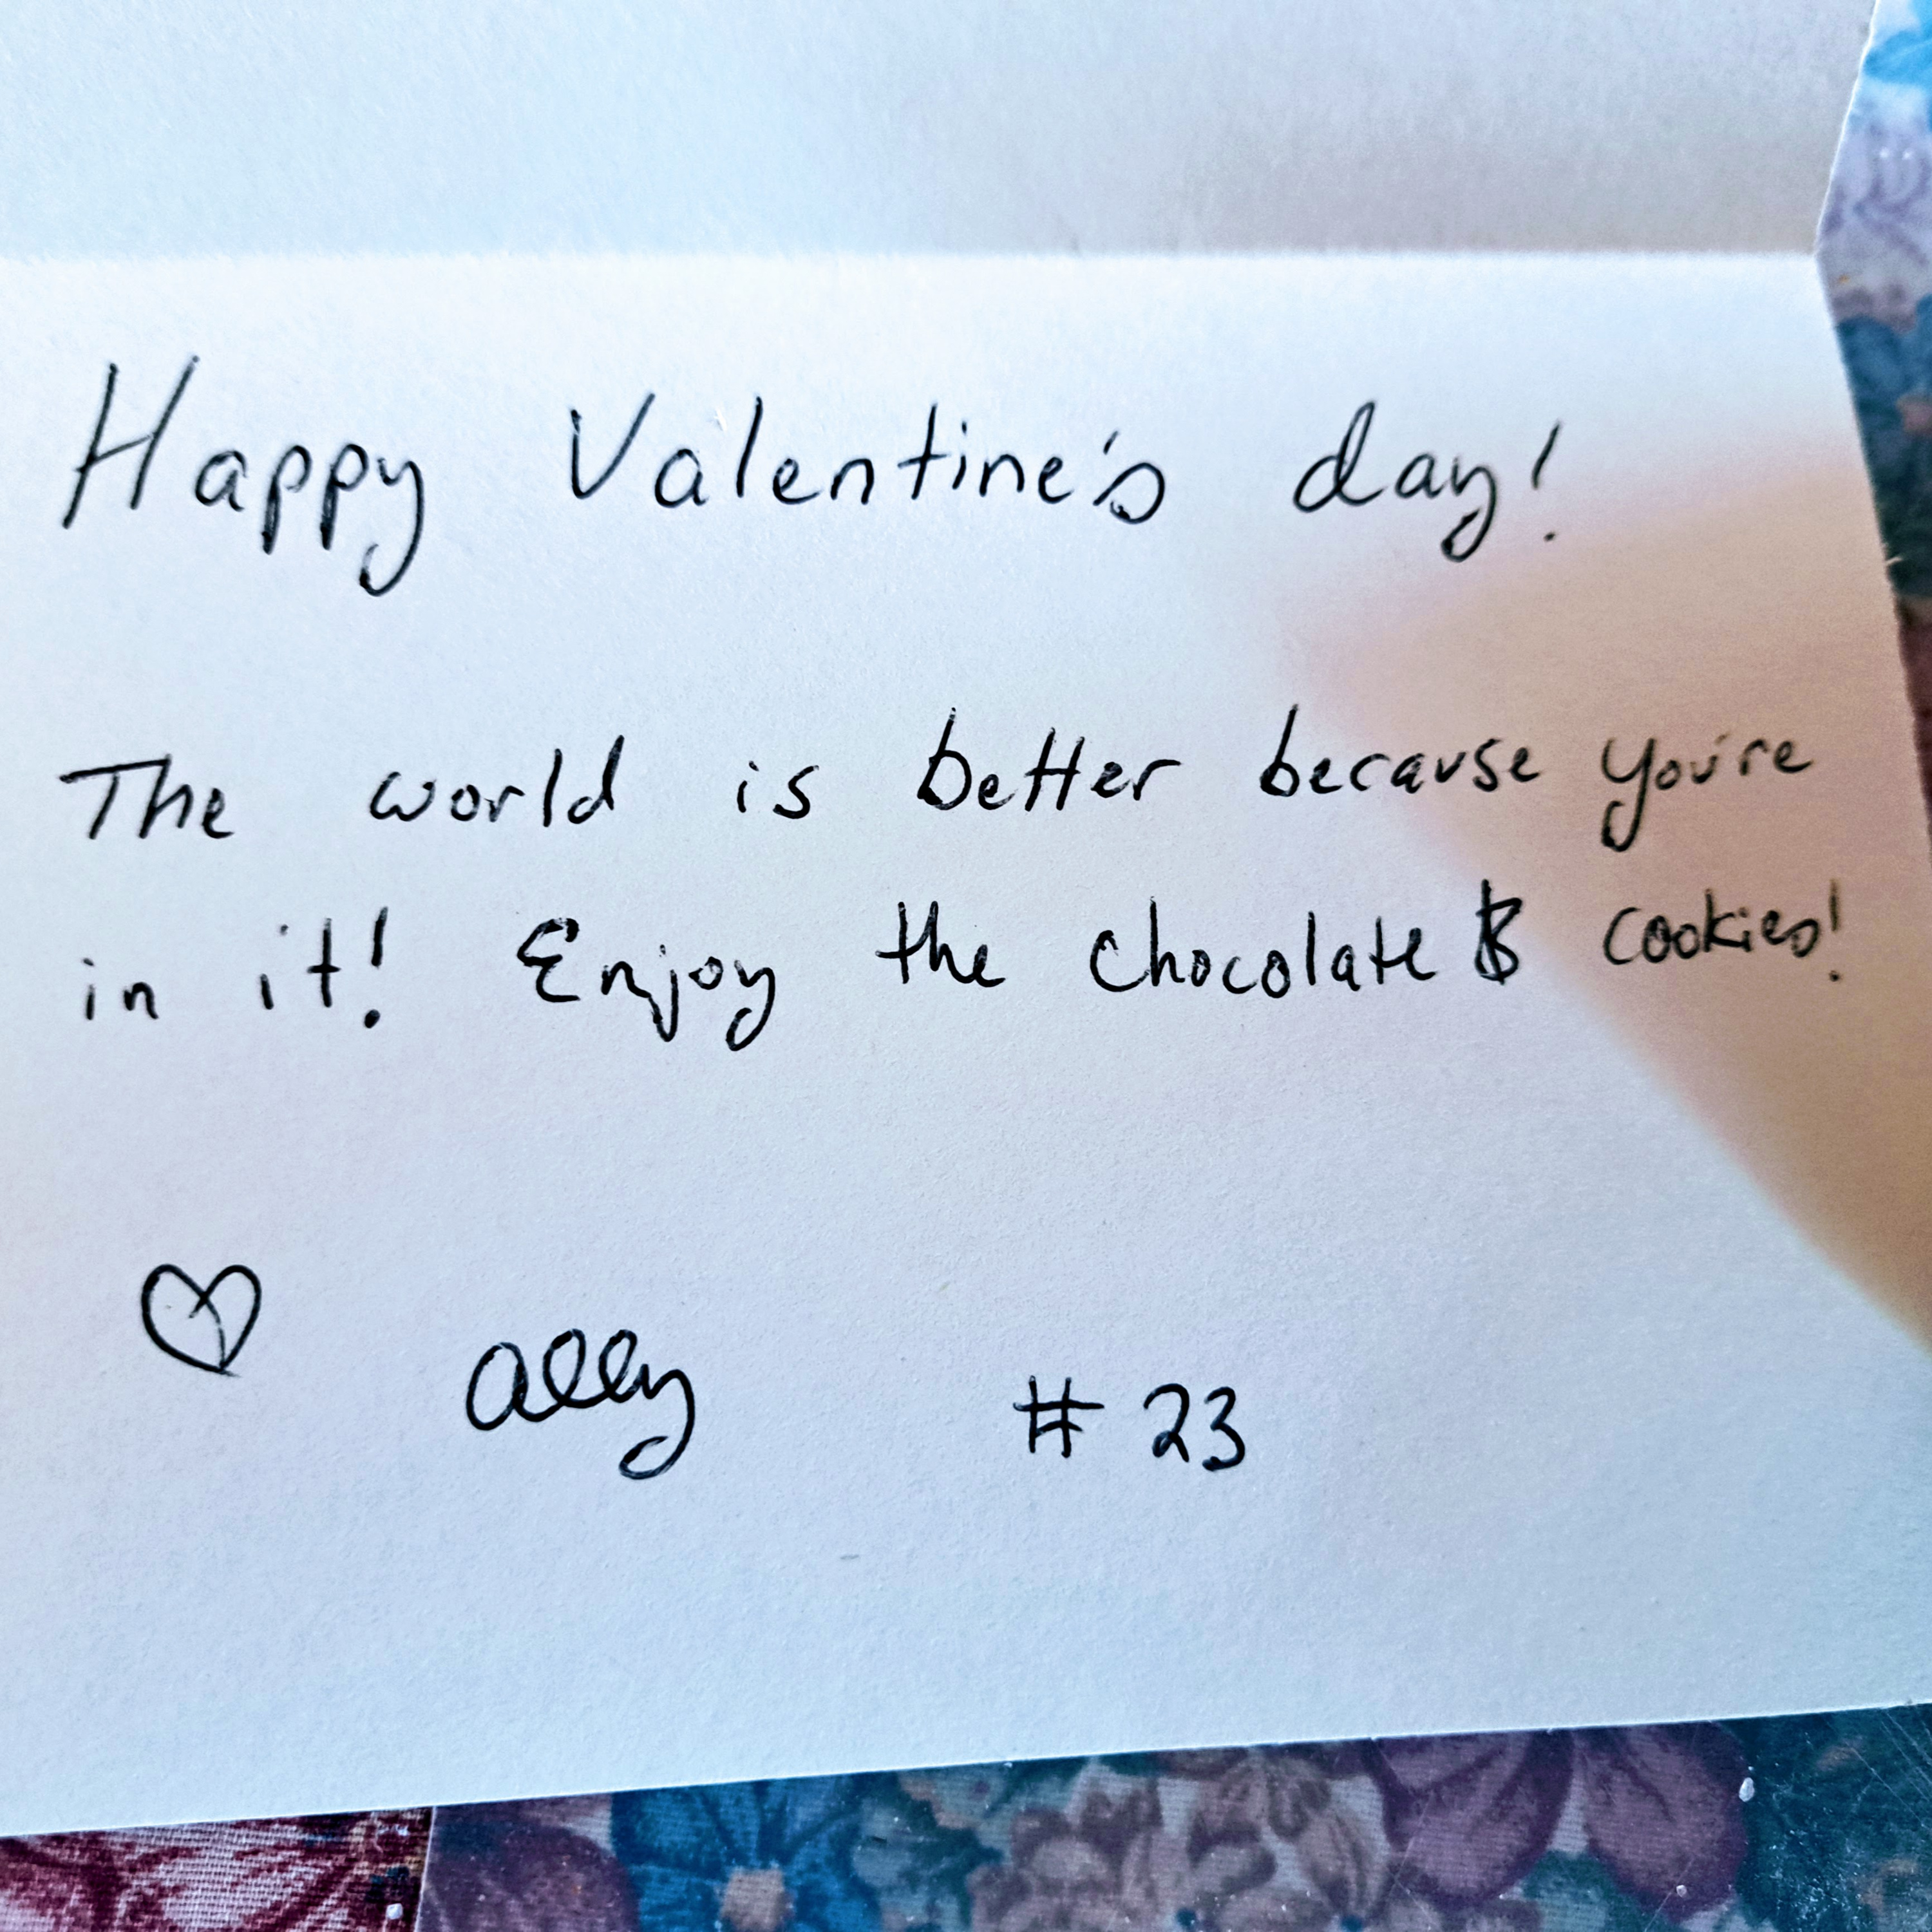 Happy Valentine's day!
The world is better because you're
in it! Enjoy the chocolate & cookies!
♡ Ally #23